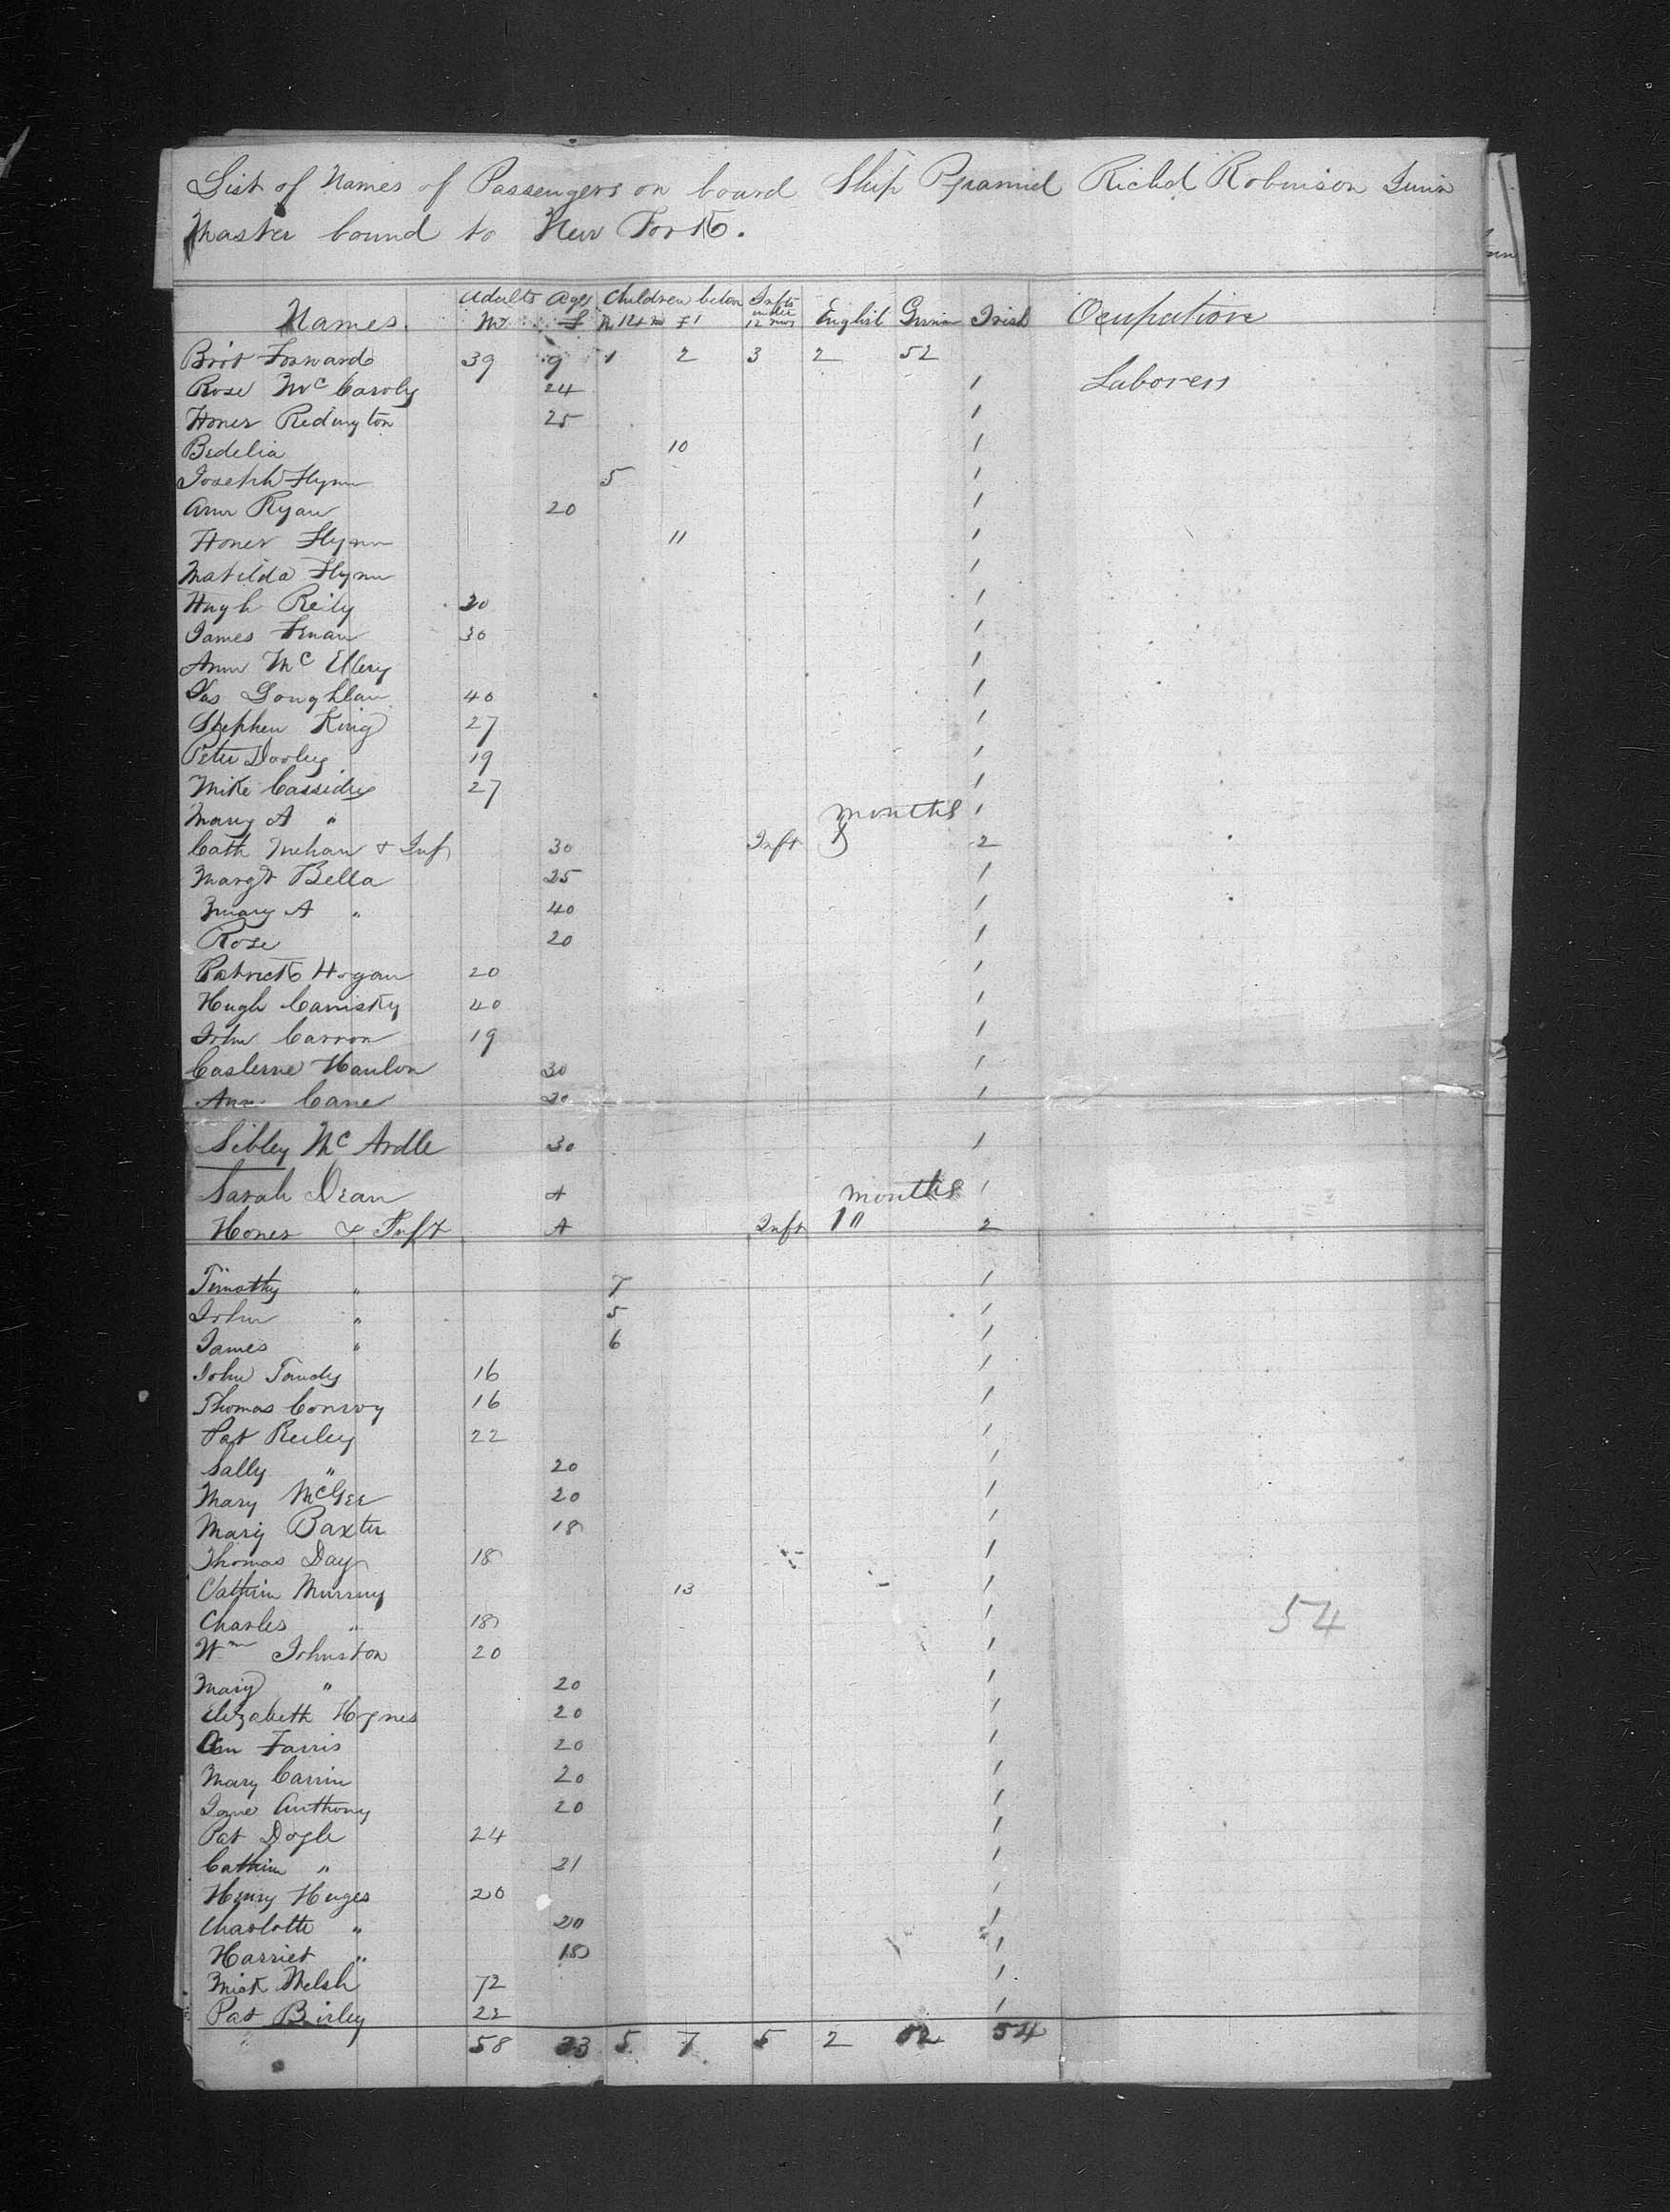 List of Names of Passengers on board Ship Pyramid Richd Robinson Junir
Master bound to New York.
Names. Adults Ages Children betwn Infts under 12 mos English German Irish Ocupation
M F M 14 & F 1
Brot Forward 39 9 1 2 3 2 52
Rose McCaroly 24 1 Laborers
Honer Redington 25 1
Bedelia 10 1
Joseph Flynn 5 1
Ann Ryan 20 1
Honer Flynn 11 1
Matilda Flynn 1
Hugh Reily 20 1
James Fenan 30 1
Ann McEllery 1
Jas Loughlan 40 1
Stephen King 27 1
Peter Dooley 19 1
Mike Cassidy 27 1
Mary A " months 1
Cath Mehan & Inf 30 Inft 8 2
Margt Bella 25 1
Mary A " 40 1
Rose 20 1
Patrick Hogan 20 1
Hugh Camisky 40 1
John Carron 19 1
Caslerne Hanlon 30 1
Ann Cane 20 1
Sibley McArdle 30 1
Sarah Dean A months 1
Honer & Inft A Inft 10 2
Timothy " 7 1
John " 5 1
James " 6 1
John Tandy 16 1
Thomas Conroy 16 1
Pat Reiley 22 1
Sally " 20 1
Mary McGee 20 1
Mary Baxter 18 1
Thomas Day 18 1
Cathrin Murray 13 1
Charles " 18 1
54
Wm Johnston 20 1
Mary " 20 1
Elizabeth Hynes 20 1
Ann Farris 20 1
Mary Carrin 20 1
Jane Anthony 20 1
Pat Doyle 24 1
Cathrin " 21 1
Henry Huges 20 1
Charlotte " 20 1
Harriet " 18 1
Mick Welsh 72 1
Pat Birley 22 1
58 33 5 7 5 2 52 54